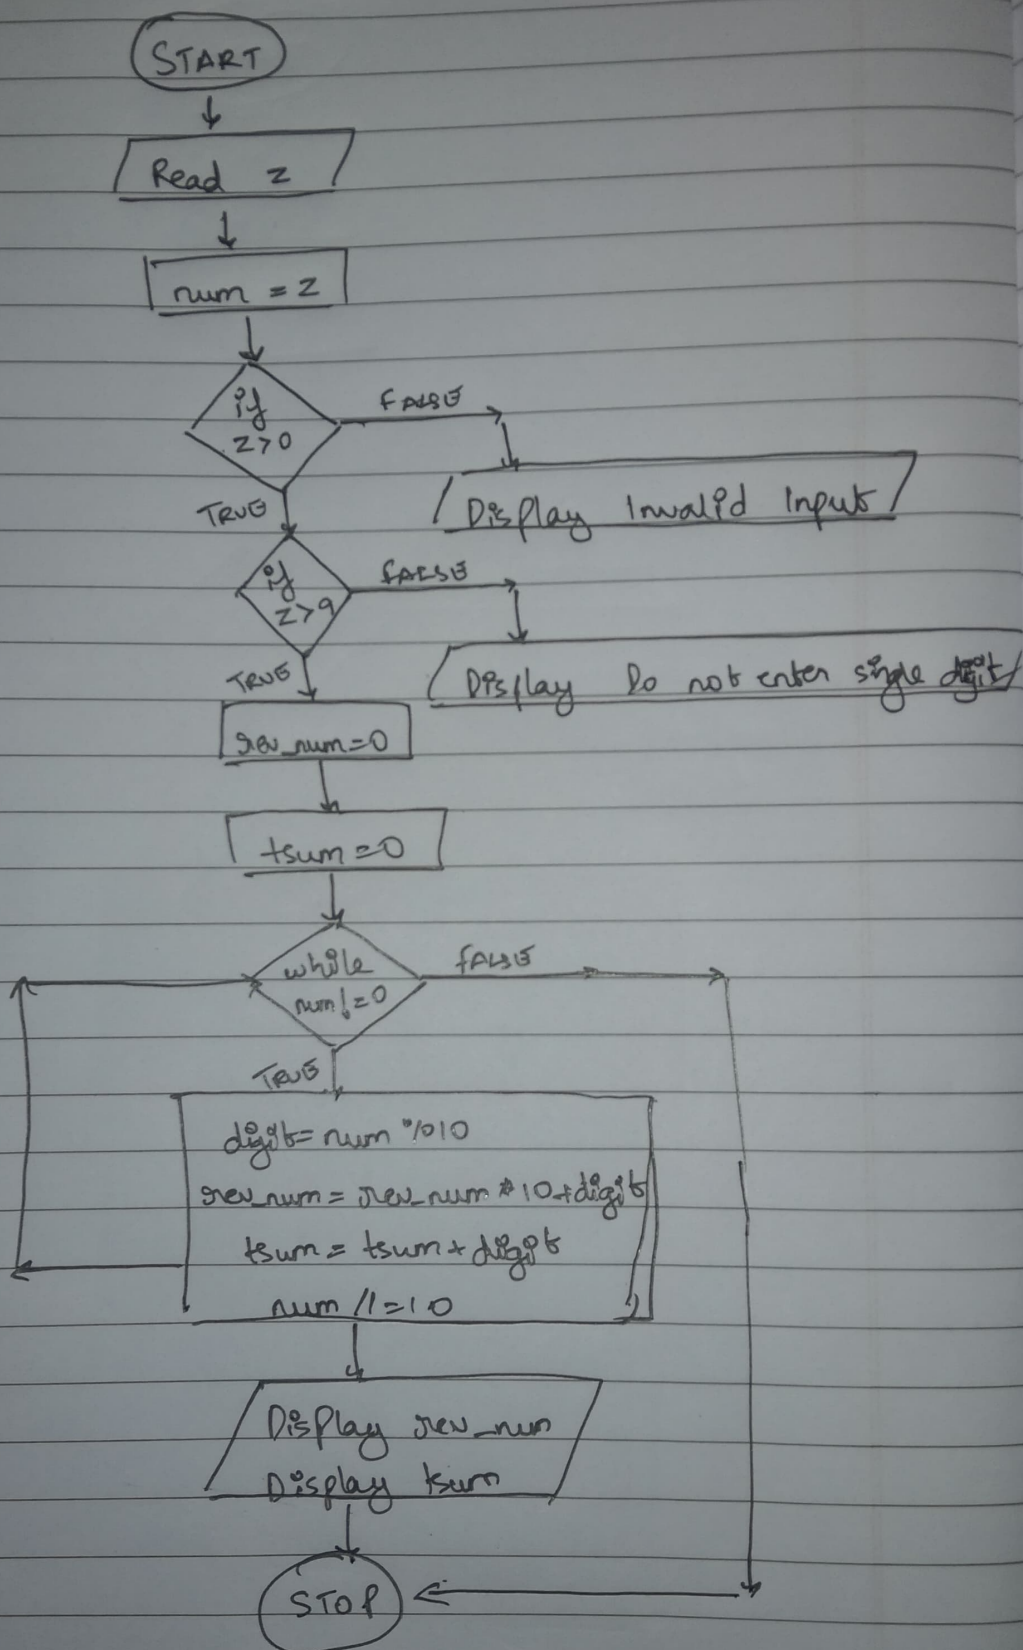 START
Read z
num = z
if
z>0
FALSE
Display Invalid Input
TRUE
if
z>9
FALSE
Display Do not enter single digit
TRUE
rev_num=0
tsum=0
while
num!=0
FALSE
TRUE
digit= num %10
rev_num= rev_num * 10+digit
tsum= tsum+digit
num //=10
Display rev_num
Display tsum
STOP